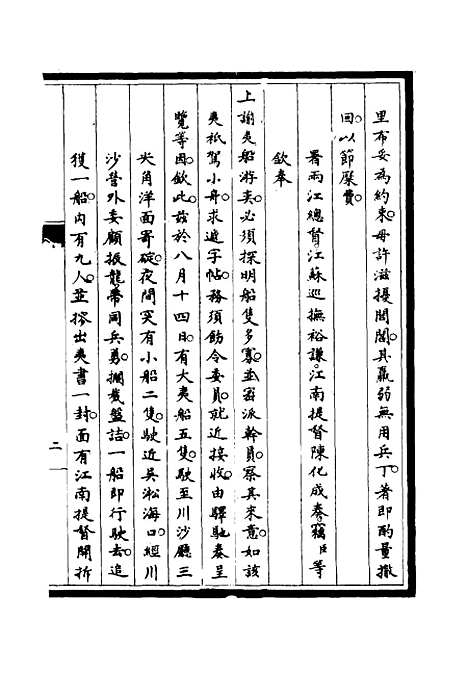 里布妥為約束。毋許滋擾閭閻。其羸弱無用兵丁。著即酌量撤
回。以節糜費。
署兩江總督江蘇巡撫裕謙。江南提督陳化成奏。竊臣等
欽奉
上諭。夷船游奕。必須探明船隻多寡。並密派幹員。察其來意。如該
夷祇駕小舟。求遞字帖。務須飭令委員。就近接收。由驛馳奏呈
覽等因。欽此。茲於八月十四日。有大夷船五隻。駛至川沙廳三
尖角洋面寄碇。夜間突有小船二隻。駛近吳淞海口。經川
沙營外委顧振龍。帶同兵勇。攔截盤詰。一船即行駛去。追
獲一船。內有九人。並搜出夷書一封。面有江南提督開拆
二